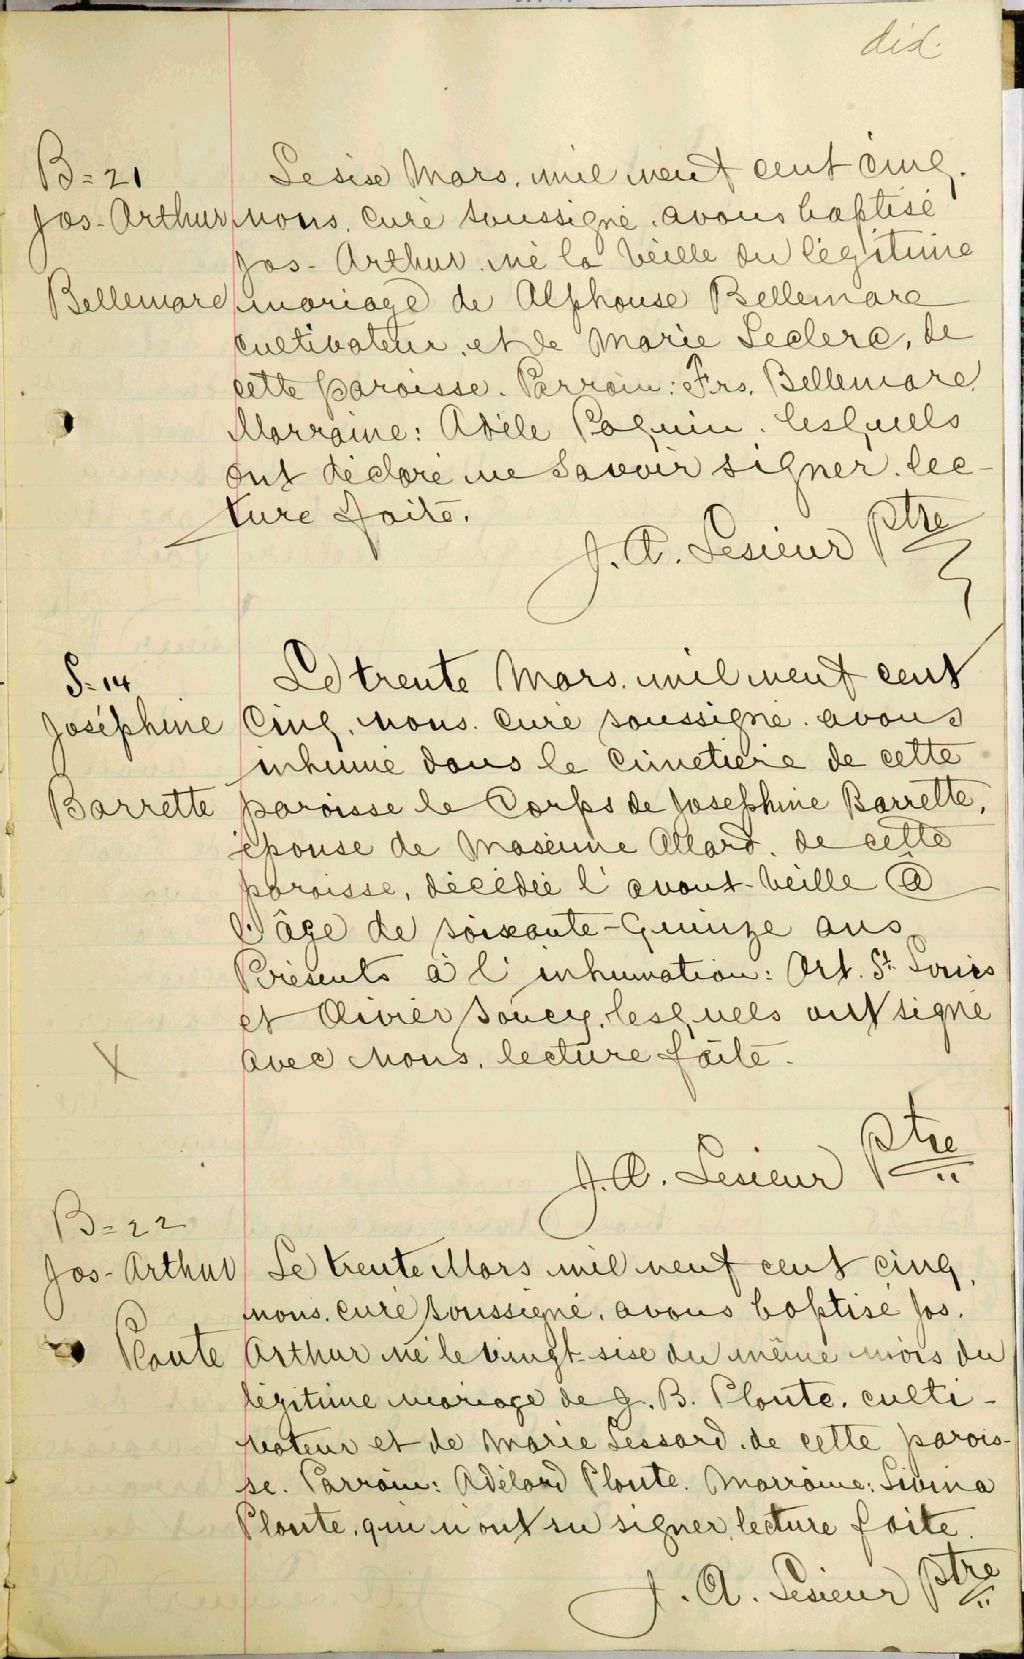 did.
B = 21
Jos-Arthur
Bellemare
Le six Mars, mil neuf cent cinq,
nous, curé soussigné, avons baptisé
Jos-Arthur né la veille du légitime
mariage de Alphonse Bellemare
cultivateur, et de Marie Leclerc, de
cette paroisse. Parrain: Frs. Bellemare,
Marraine: Adèle Paquin, lesquels
ont déclaré ne savoir signer. lec-
ture faite.
J. A. Lesieur Ptre
S = 14
Joséphine
Barrette
Le trente Mars, mil neuf cent
cinq, nous, curé soussigné, avons
inhumé dans le cimetière de cette
paroisse le corps de Josephine Barrette,
épouse de Maxime Allard, de cette
paroisse, décédée l'avant-veille à
l'âge de soixante-quinze ans.
Présents à l'inhumation: Art. St. Louis
et Olivier Soucy, lesquels ont signé
avec nous, lecture faite.
X
J. A. Lesieur Ptre
B = 22
Jos-Arthur
Plante
Le trente Mars mil neuf cent cinq,
nous, curé soussigné, avons baptisé Jos.
Arthur né le vingt-six du même mois du
légitime mariage de J. B. Plante, culti-
vateur et de Marie Lessard, de cette parois-
se. Parrain: Adélard Plante. Marraine: Livina
Plante, qui n'ont su signer, lecture faite.
J. A. Lesieur Ptre